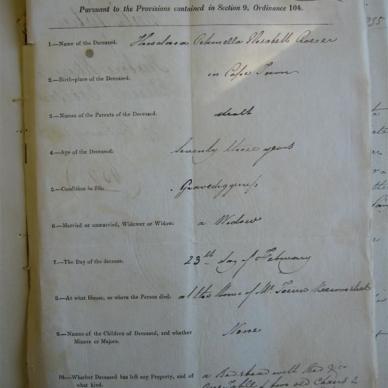 Pursuant to the Provisions contained in Section 9, Ordinance 104.
1.—Name of the Deceased. Petronella Elizabeth
2.—Birth-place of the Deceased. in Cape Town
3.—Names of the Parents of the Deceased. dealt
4.—Age of the Deceased: seventy three years
5.—Condition in life.
6.—Married or unmarried, Widower or Widow. a Widow
7.—The Day of the decease. 23th day of February
8.—At what House, or where the Person died. at the House of Mr.
9.—Names of the Children of Deceased, and whether None
Minors or Majors.
10.—Whether Deceased has left any Property, and of a Bedstead with Bed &ca
what kind. One Table 4 four old Chairs 2